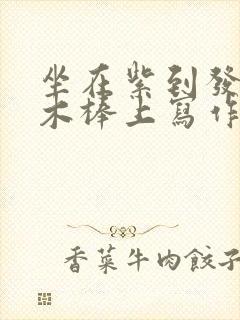 坐在紫到發
木棒上寫作
香菜牛肉餃子